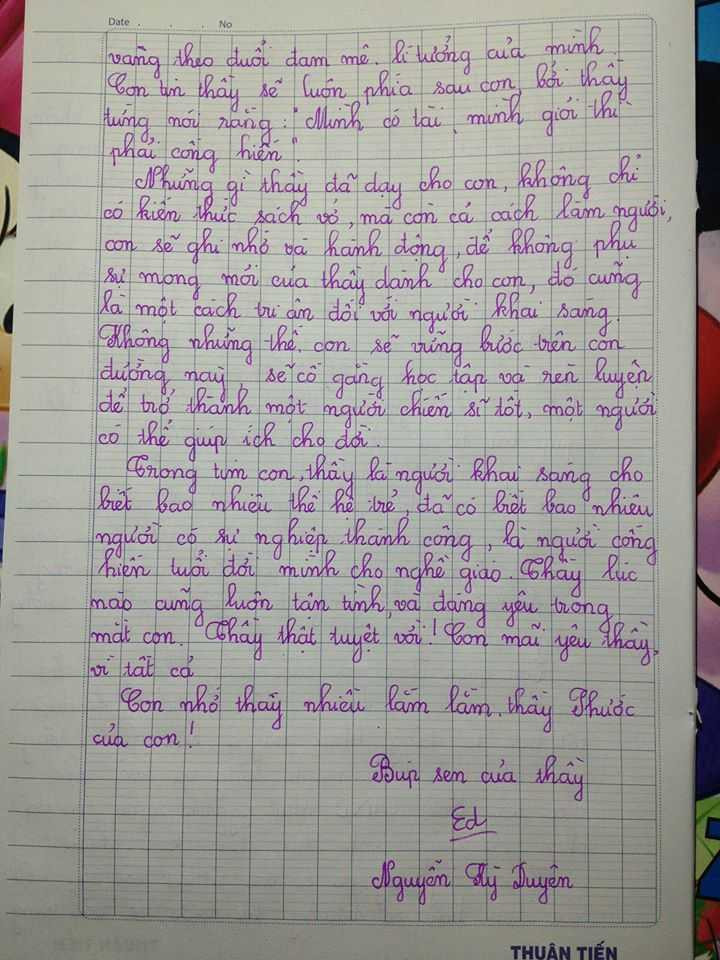 Date . . . No
vàng theo đuổi đam mê. lí tưởng của mình.
Con tin thầy sẽ luôn phía sau con, bởi thầy
từng nói rằng: "Mình có tài, mình giỏi thì
phải cống hiến".
Những gì thầy đã dạy cho con, không chỉ
có kiến thức sách vở, mà còn cả cách làm người,
con sẽ ghi nhớ và hành động, để không phụ
sự mong mỏi của thầy dành cho con, đó cũng
là một cách tri ân đối với người khai sáng.
Không những thế, con sẽ vững bước trên con
đường này, sẽ cố gắng học tập và rèn luyện
để trở thành một người chiến sĩ tốt, một người
có thể giúp ích cho đời.
Trong tim con, thầy là người khai sáng cho
biết bao nhiêu thế hệ trẻ, đã có biết bao nhiêu
người có sự nghiệp thành công, là người cống
hiến tuổi đời mình cho nghề giáo. Thầy lúc
nào cũng luôn tận tình, và đáng yêu trong
mắt con. Thầy thật tuyệt vời! Con mãi yêu thầy,
vì tất cả
Con nhớ thầy nhiều lắm lắm, thầy Phước
của con!
Búp sen của thầy
Ed
Nguyễn Kỳ Duyên
THUẬN TIẾN